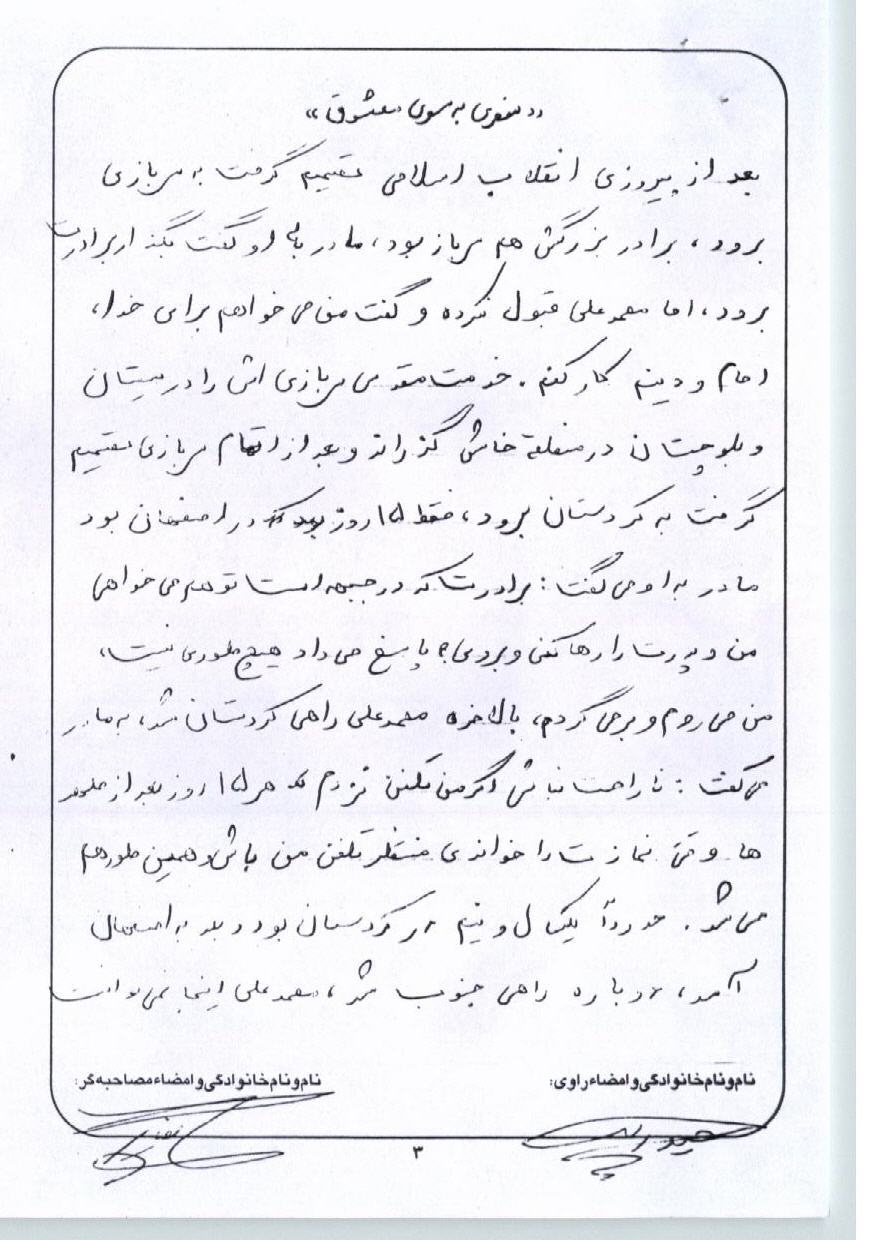 «سفری به سوی معشوق»
بعد از پیروزی انقلاب اسلامی تصمیم گرفت به سربازی
برود، برادر بزرگش هم سرباز بود، مادر به او گفت بگذار برادرت
برود، اما محمدعلی قبول نکرده و گفت من می خواهم برای خدا،
امام و دینم کار کنم. خدمت مقدس سربازی اش را در سیستان
و بلوچستان در منطقه خاش گذراند و بعد از اتمام سربازی تصمیم
گرفت به کردستان برود، فقط ۱۵ روز بود که در اصفهان بود
مادر به او می گفت: برادرت که در جبهه است تو هم می خواهی
من و پدرت را رها کنی و بروی؟ پاسخ می داد هیچ طوری نیست،
من می روم و برمی گردم، بالاخره محمدعلی راهی کردستان شد، به مادر
می گفت: ناراحت نباش اگر من تلفن نزدم هر ۱۵ روز بعد از
ها وقتی نمازت را خواندی منتظر تلفن من باش و همین طور هم
می شد. حدوداً یکسال و نیم در کردستان بود و بعد به اصفهان
آمد، دوباره راهی جنوب شد، محمدعلی اینجا نمی توانست
نام و نام خانوادگی و امضاء راوی:
نام و نام خانوادگی و امضاء مصاحبه گر:
۳